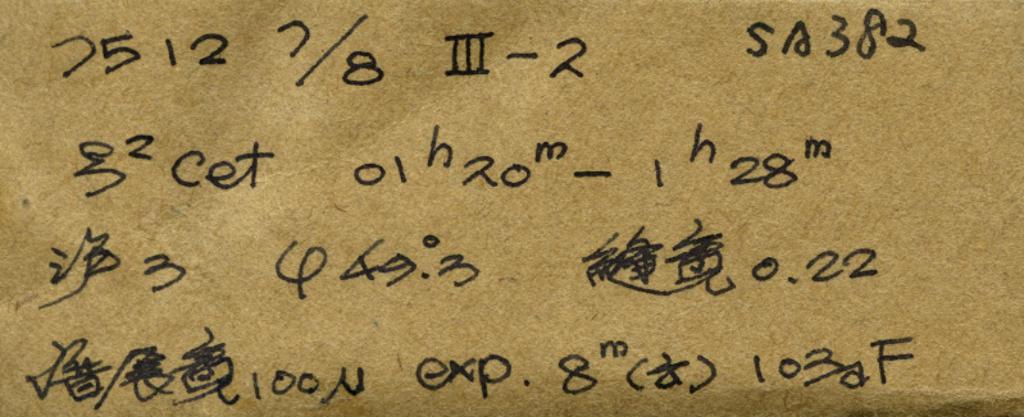 7512 7/8 III-2 SA382
ξ² Cet 01ʰ20ᵐ - 1ʰ28ᵐ
3 φ 49°.3 縫寛 0.22
0.22 exp. 8ᵐ 103aF